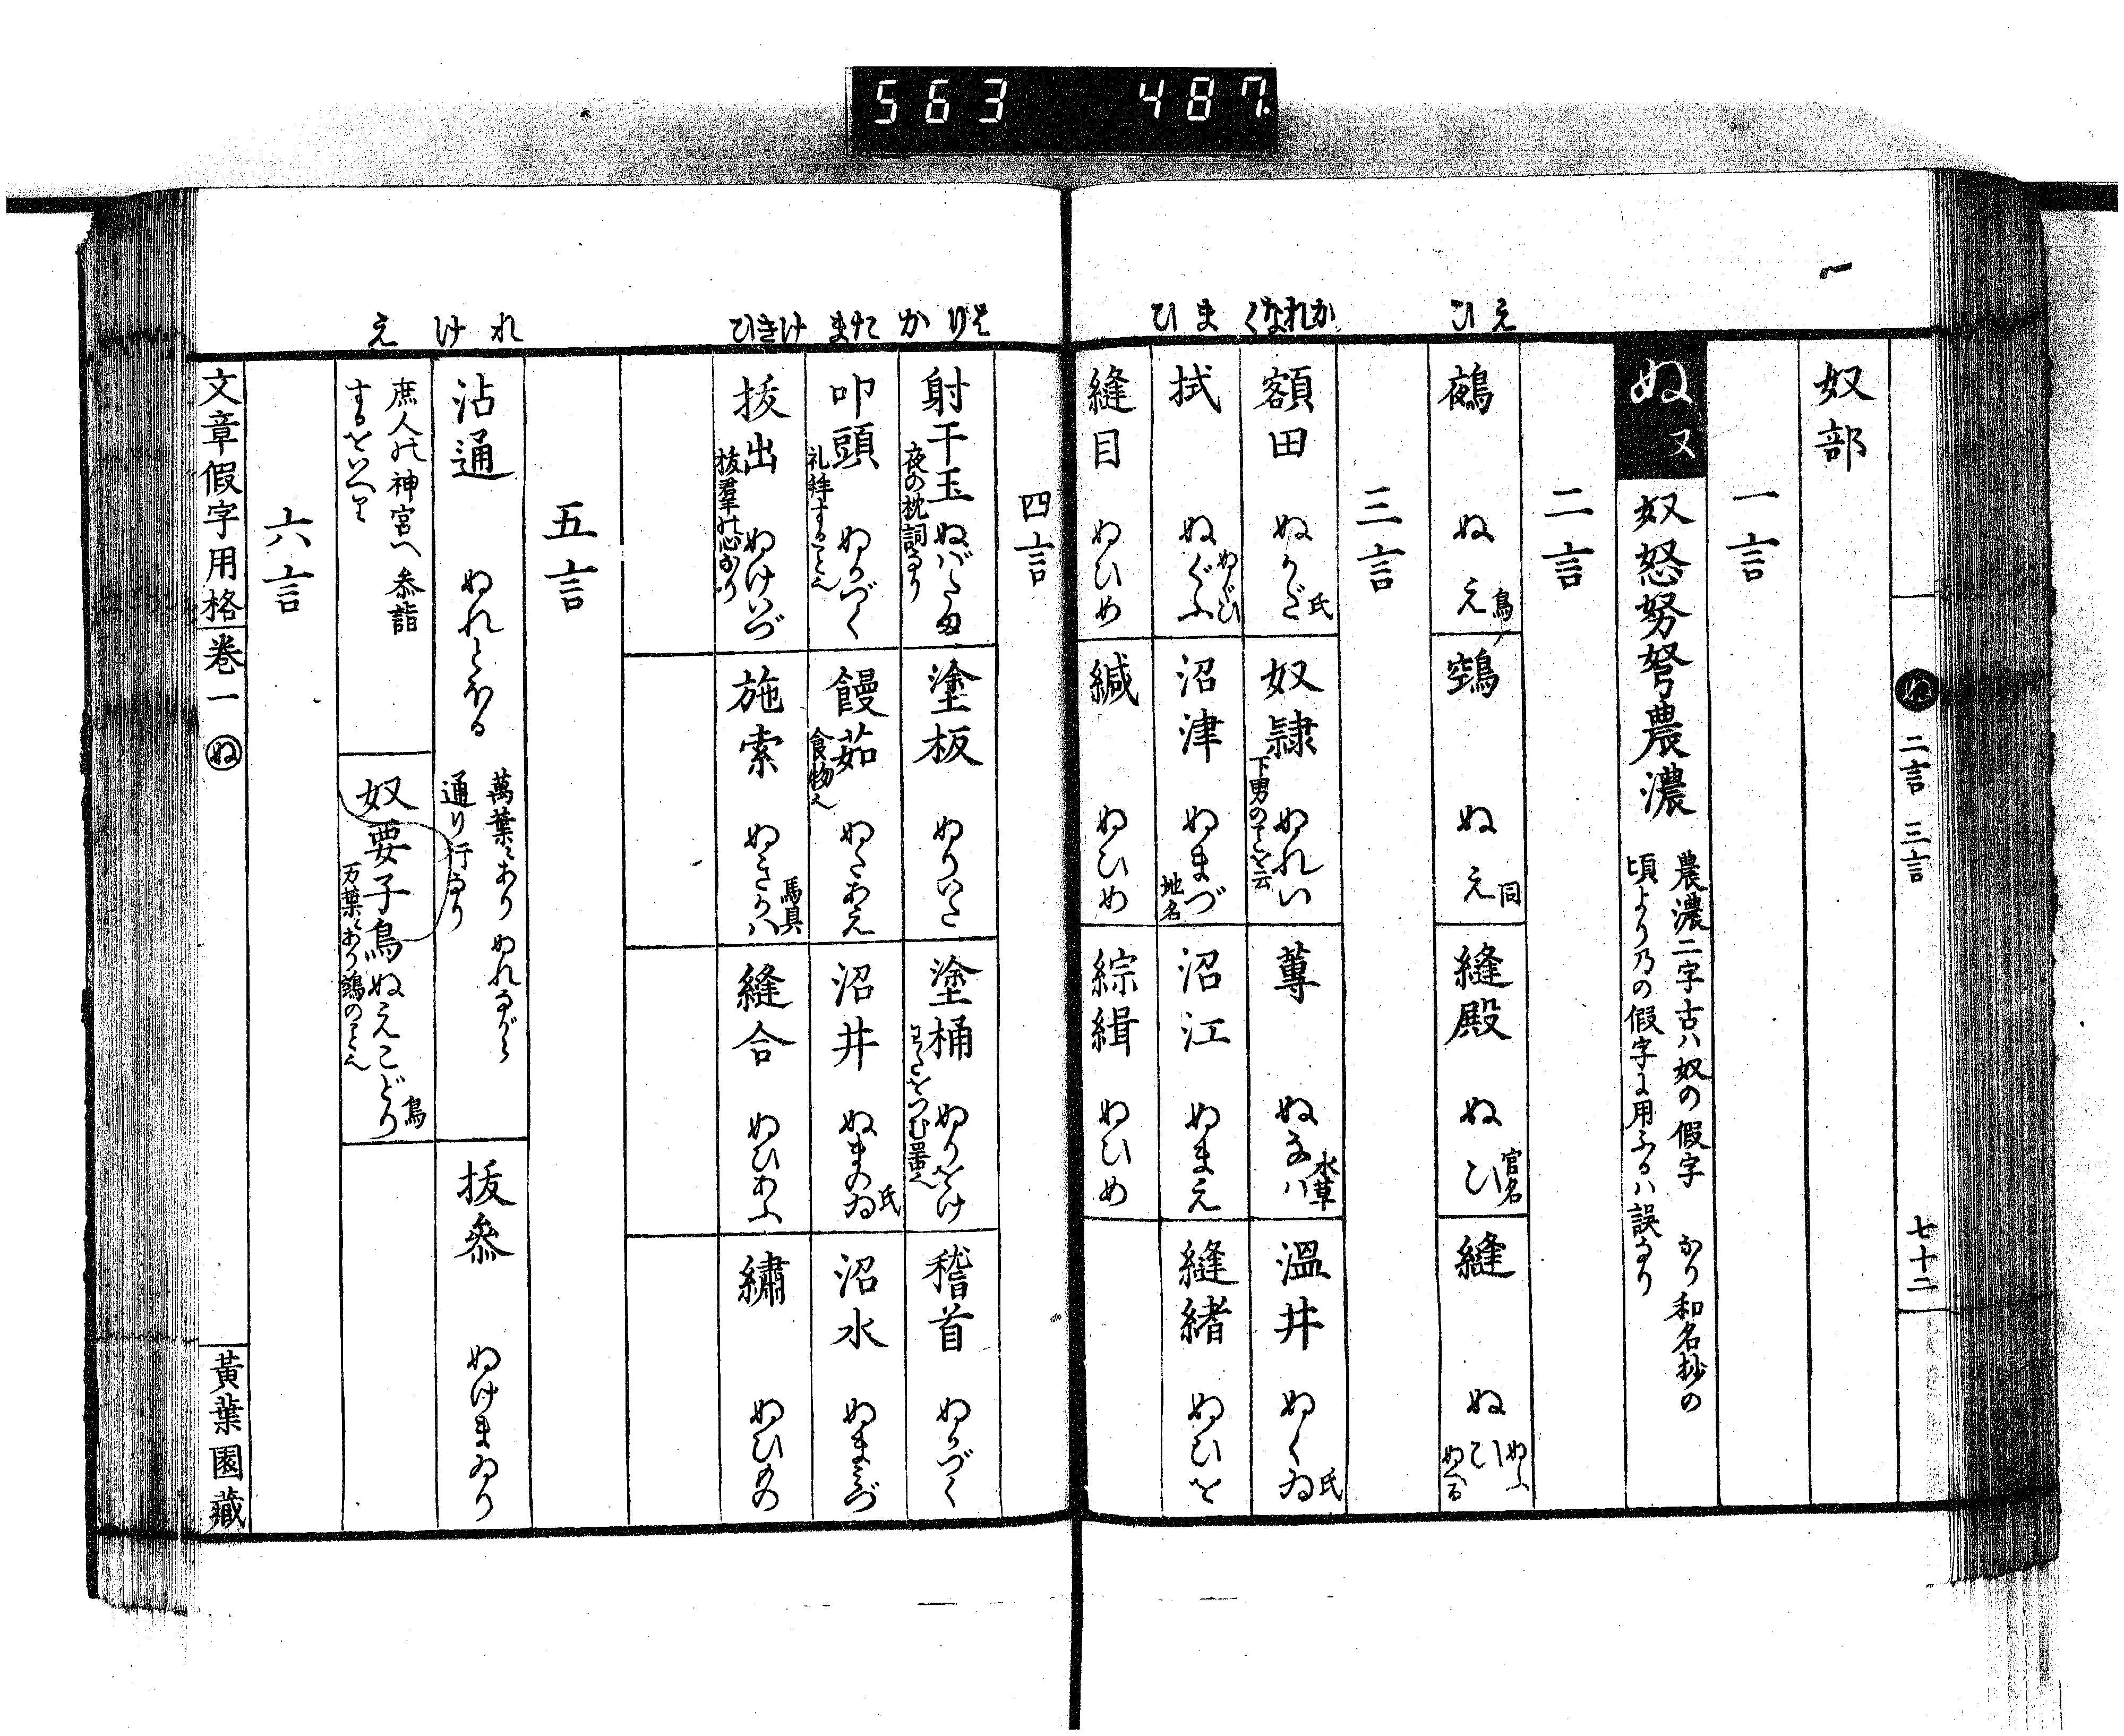 563 487
ぬ 二言 三言 七十二
奴部
一言
ぬ ヌ 奴怒努弩農濃 農濃二字古ハ奴の假字なり和名抄の
頃より乃の假字に用ふるハ誤なり
二言
え ひ
鵺 ぬえ 鳥
鵼 ぬえ 同
縫殿 ぬひ 官名
縫 ぬひ ぬふ ぬへる
三言
か れ な く
額田 ぬかだ 氏
奴隷 ぬれい 下男のことを云
蓴 ぬなハ 水草
溫井 ぬくゐ 氏
ま ひ
拭 ぬぐふ ぬぐひ
沼津 ぬまづ 地名
沼江 ぬまえ
縫緒 ぬひを
縫目 ぬひめ
緘 ぬひめ
綜緝 ぬひめ
四言
射干玉 ぬばたま 夜の枕詞なり
塗板 ぬりいた
塗桶 ぬりをけ わたをつむ器也
稽首 ぬかづく
叩頭 ぬかづく 礼拝すること也
饅茹 ぬたあえ 食物也
沼井 ぬまのゐ 氏
沼水 ぬまミづ
け き ひ
拔出 ぬけいづ 拔群の心なり
施索 ぬきかハ 馬具
縫合 ぬひあふ
繡 ぬひもの
五言
れ け え
沾通 ぬれとほる 萬葉にあり ぬれながら
通り行なり
拔參 ぬけまゐり
庶人の神宮へ參詣
するをいへり
奴要子鳥 ぬえこどり 鳥 万葉にあり鵼のこと也
六言
文章假字用格 卷一 ぬ 黃葉園藏